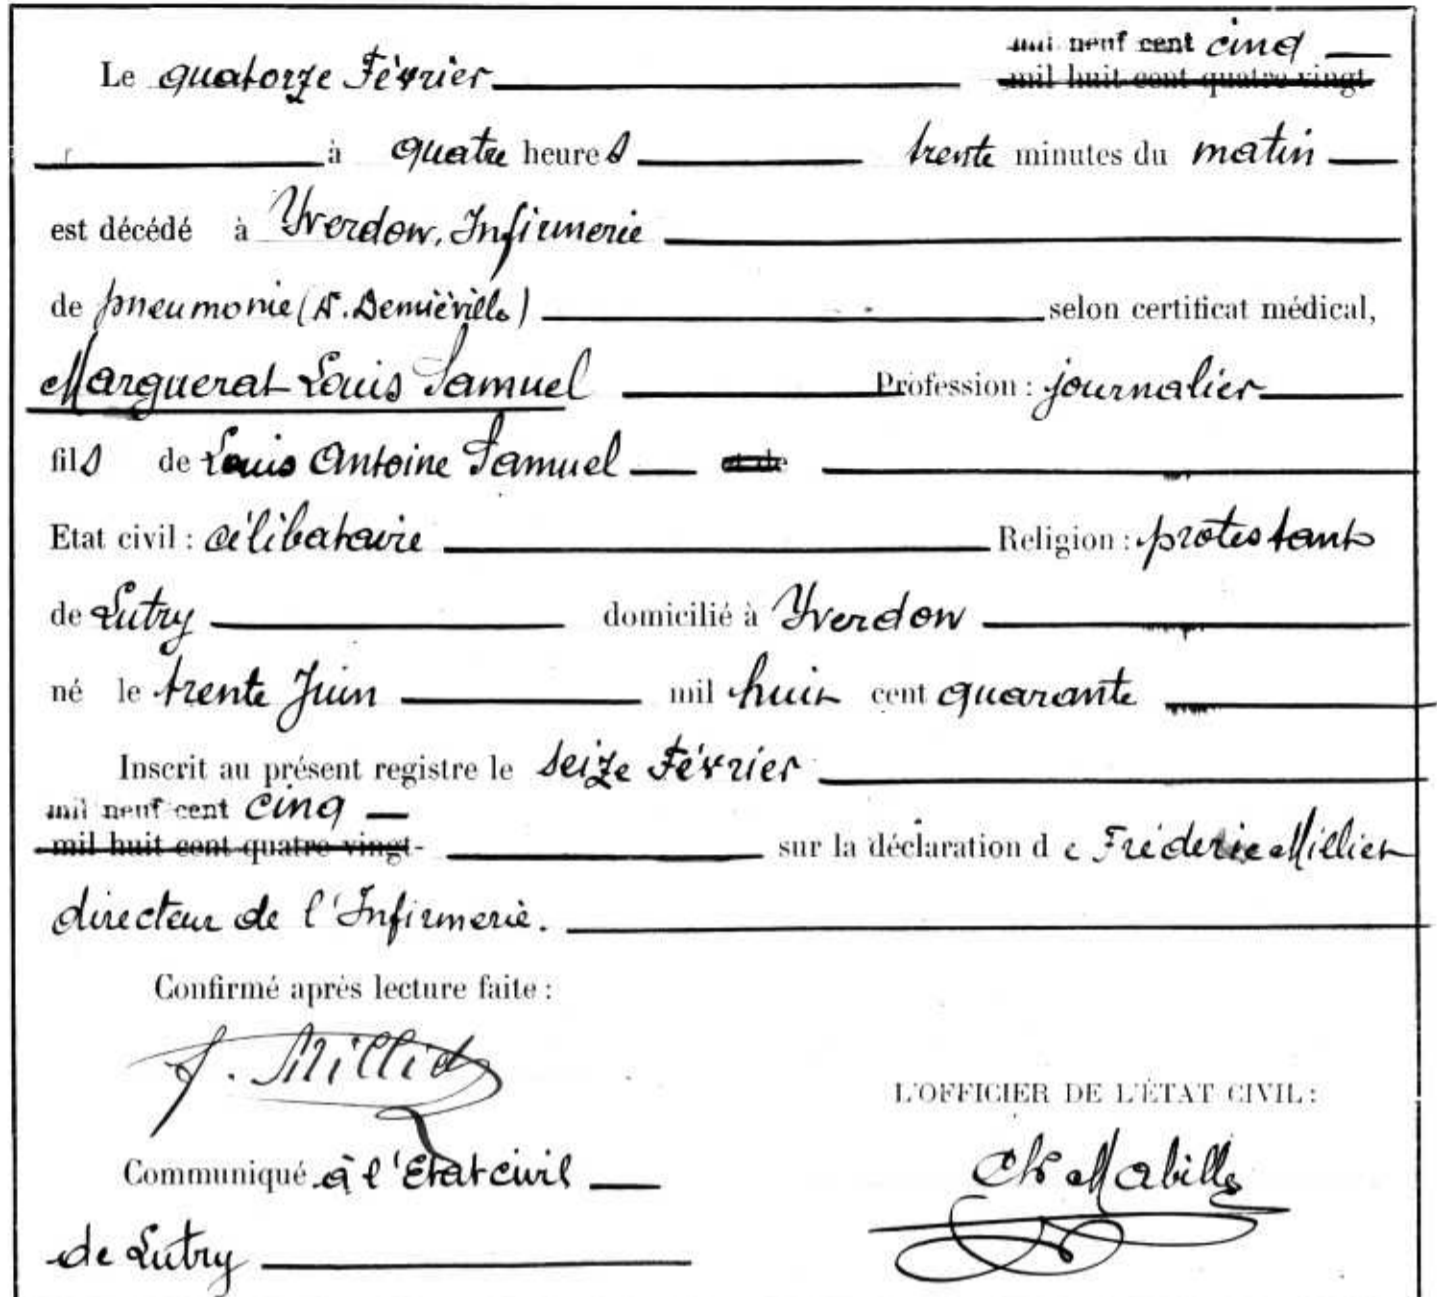 mil neuf cent cinq
Le quatorze Février mil huit cent quatre vingt
à quatre heures trente minutes du matin
est décédé à Yverdon, Infirmerie
de pneumonie (Dr. Demiéville) selon certificat médical,
Marguerat Louis Samuel Profession : journalier
fils de Louis Antoine Samuel et de
Etat civil : célibataire Religion : protestant
de Lutry domicilié à Yverdon
né le trente Juin mil huit cent quarante
Inscrit au présent registre le seize Février
mil neuf cent cinq
mil huit cent quatre vingt- sur la déclaration de Fréderic Milliet
directeur de l'Infirmerie.
Confirmé après lecture faite :
f. Milliet
L'OFFICIER DE L'ÉTAT CIVIL :
Communiqué à l'Etat civil
Ch Mabille
de Lutry